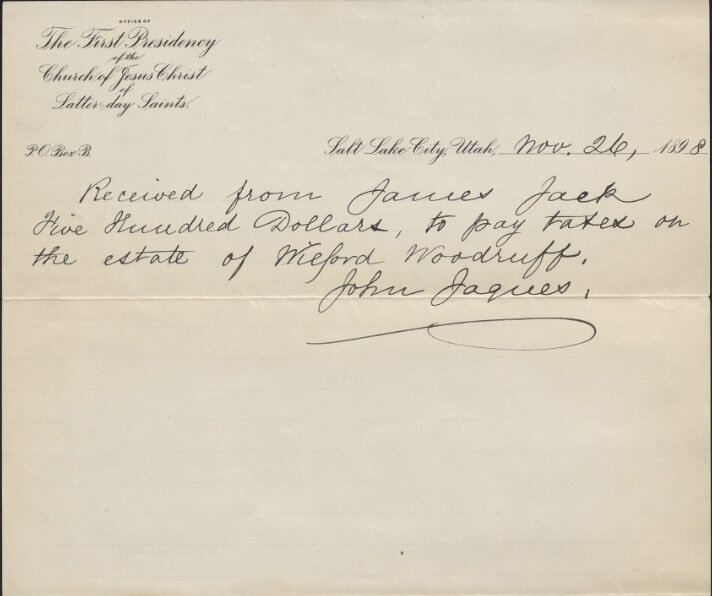 OFFICE OF
The First Presidency
of the
Church of Jesus Christ
of
Latter-day Saints.
P.O. Box B.
Salt Lake City, Utah, Nov. 26, 1898
Received from James Jack
Five Hundred Dollars, to pay taxes on
the estate of Wilford Woodruff.
John Jaques.